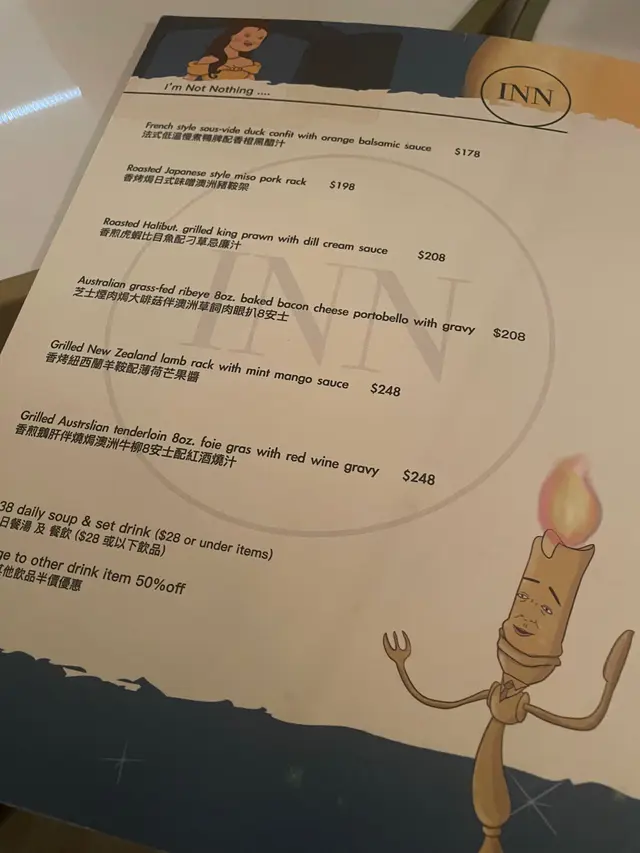 I'm Not Nothing ....
INN
French style sous-vide duck confit with orange balsamic sauce $178
法式低温慢煮鴨髀配香橙黑醋汁
Roasted Japanese style miso pork rack $198
香烤焗日式味噌澳洲豬鞍架
Roasted Halibut, grilled king prawn with dill cream sauce $208
香煎虎蝦比目魚配刁草忌廉汁
Australian grass-fed ribeye 8oz. baked bacon cheese portobello with gravy $208
芝士煙肉焗大啡菇伴澳洲草飼肉眼扒8安士
Grilled New Zealand lamb rack with mint mango sauce $248
香烤紐西蘭羊鞍配薄荷芒果醬
Grilled Austrslian tenderloin 8oz. foie gras with red wine gravy $248
香煎鵝肝伴燒焗澳洲牛柳8安士配紅酒燒汁
INN
38 daily soup & set drink ($28 or under items)
日餐湯 及 餐飲 ($28 或以下飲品)
ge to other drink item 50%off
其他飲品半價優惠